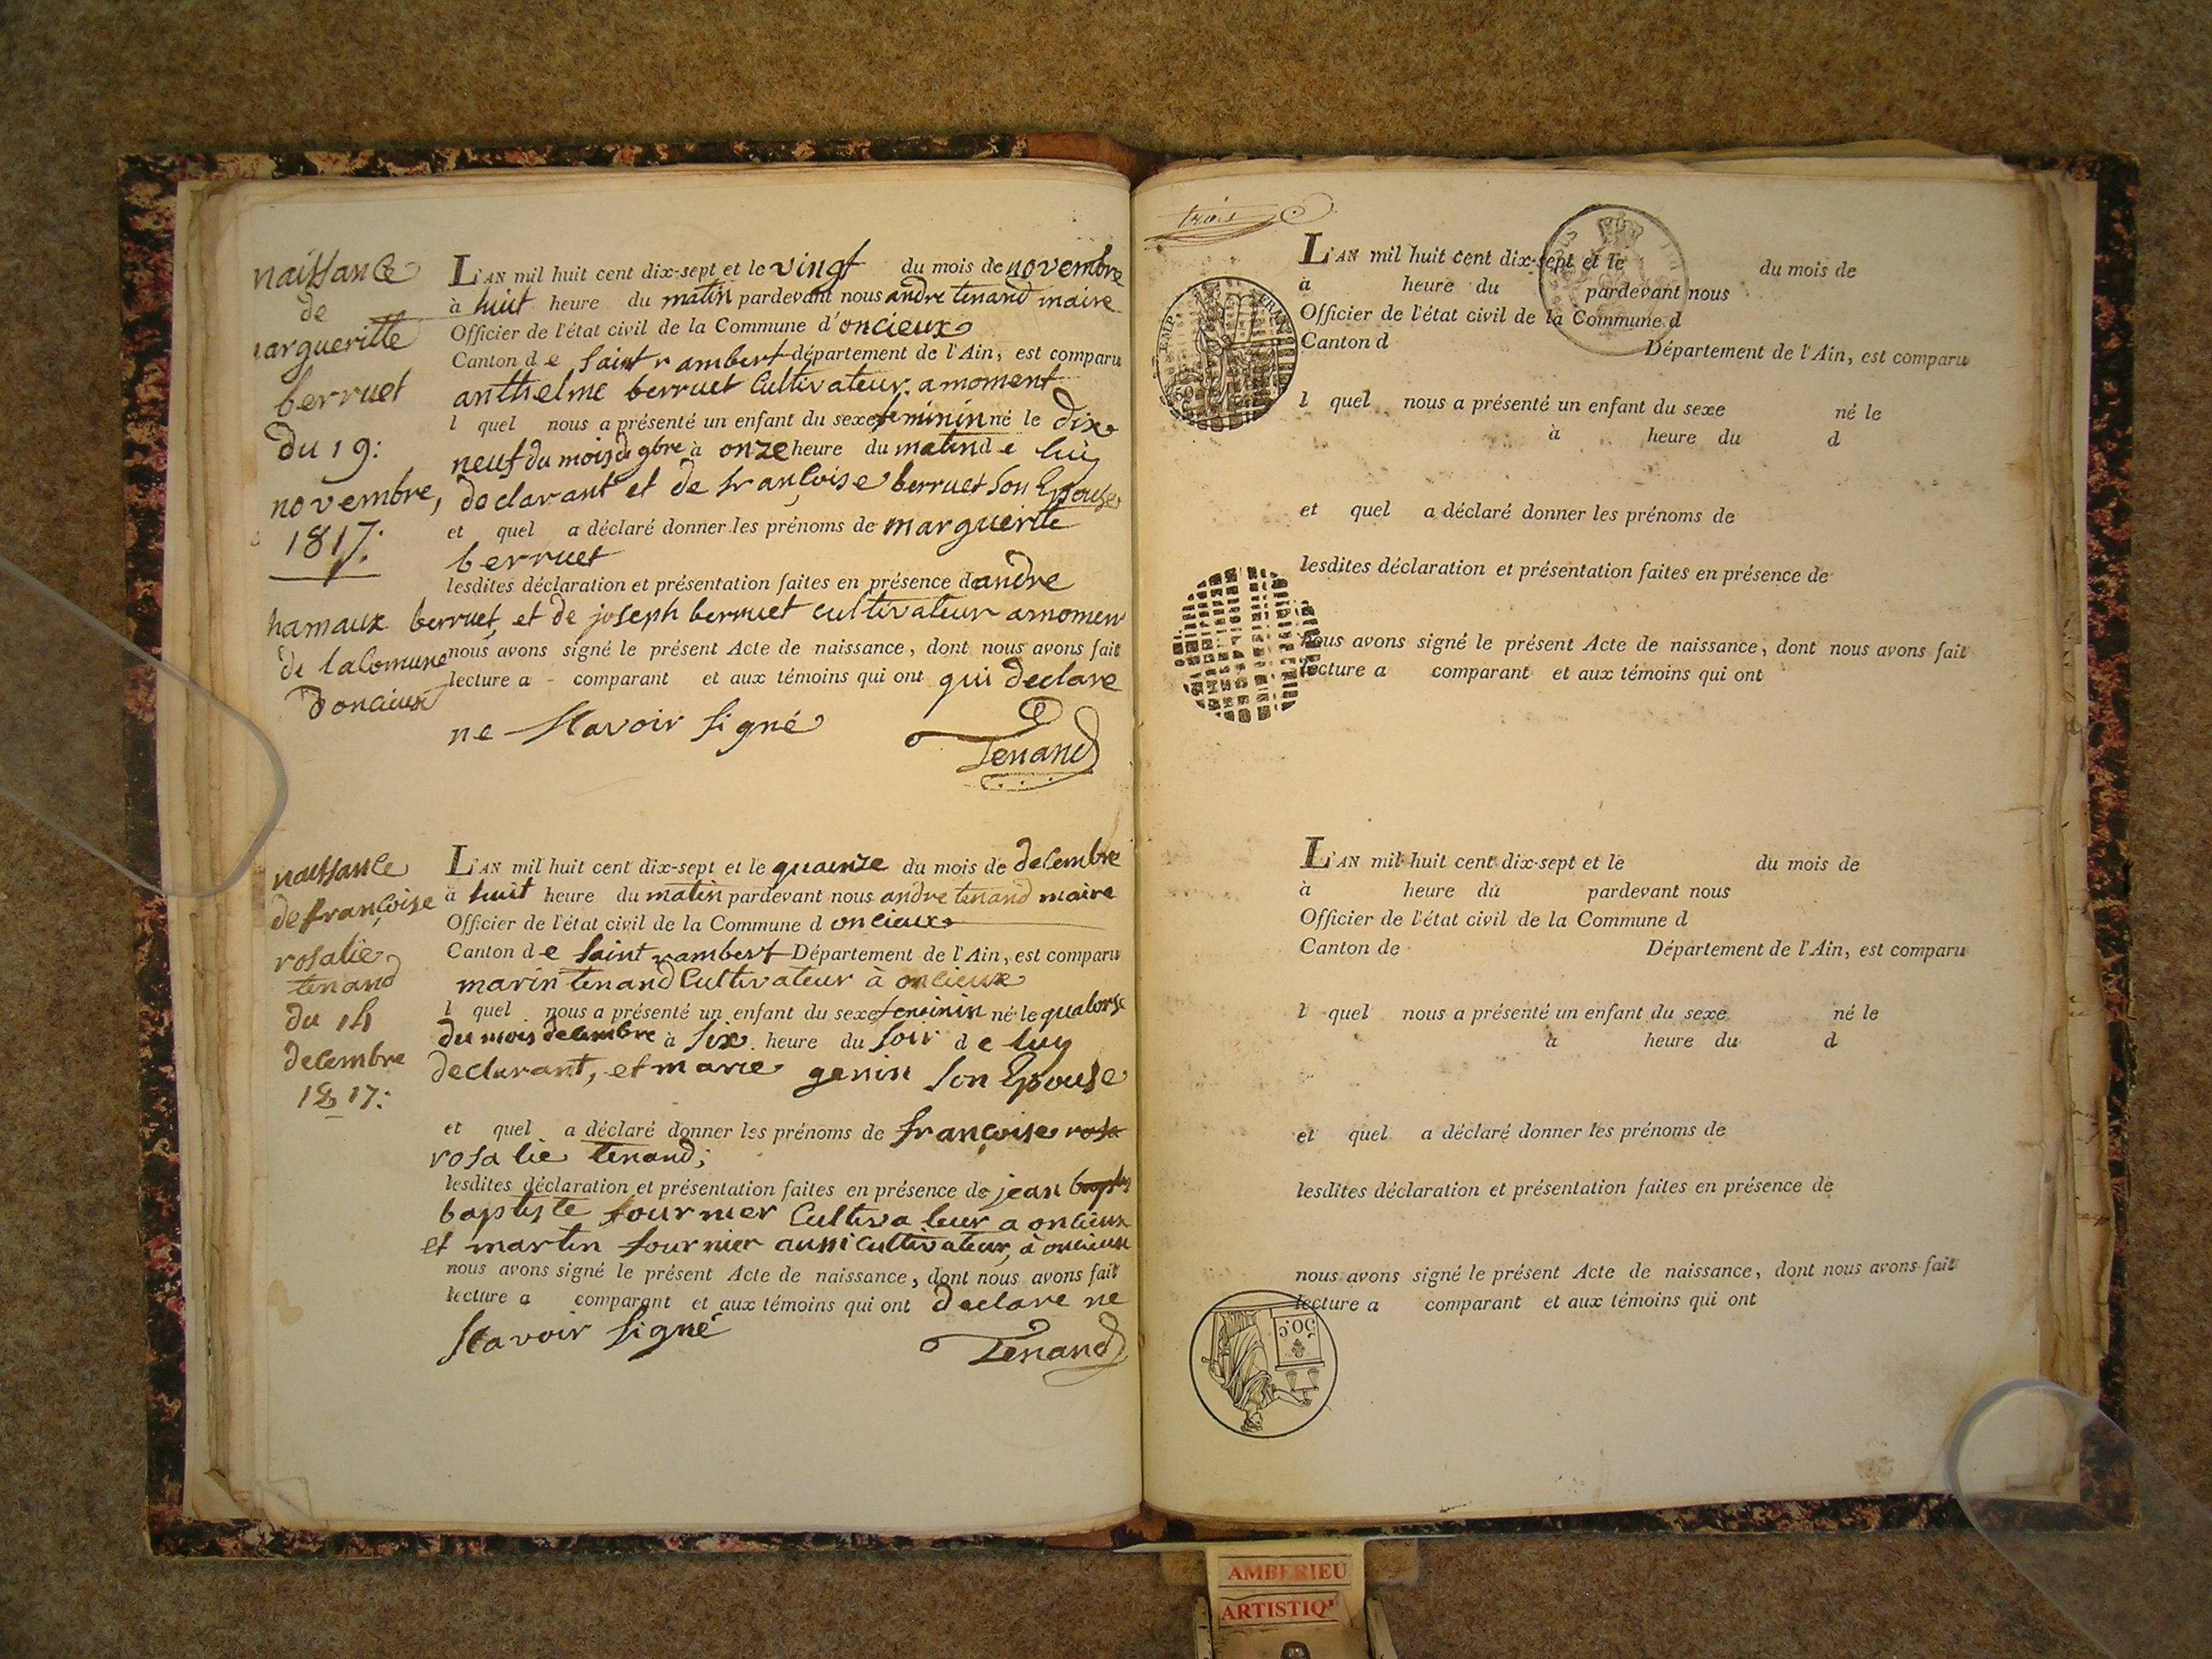 naissance
de
margueritte
berruet
du 19:
novembre,
1817:
hamaux
de lacomune
Doncieux
L'AN mil huit cent dix-sept et le vingt du mois de novembre
à huit heure du matin pardevant nous andre tenand maire
Officier de l'état civil de la Commune d'oncieux
Canton de Saint rambert département de l'Ain, est comparu
anthelme berruet Cultivateur amoment
l quel nous a présenté un enfant du sexe feminin né le dix
neuf du mois de 9bre à onze heure du matin de luy
declarant et de françoise berruet Son Epouse
et quel a déclaré donner les prénoms de marguerite
berruet
lesdites déclaration et présentation faites en présence dandre
berruet, et de joseph berruet cultivateur amomen
nous avons signé le présent Acte de naissance, dont nous avons fait
lecture a - comparant et aux témoins qui ont qui declare
ne Scavoir Signé
Tenand
naissance
de françoise
rosalie
tenand
du 14
decembre
1817:
L'AN mil huit cent dix-sept et le quainze du mois de decembre
à huit heure du matin pardevant nous andre tenand maire
Officier de l'état civil de la Commune d oncieux
Canton de Saint rambert Département de l'Ain, est comparu
marin tenand Cultivateur à oncieux
l quel nous a présenté un enfant du sexe feminin né le quatorse
du mois decembre à Six heure du Soir de luy
declarant, et marie genin Son Epouse
et quel a déclaré donner les prénoms de françoise rosa
rosalie tenand;
lesdites déclaration et présentation faites en présence de jean
baptiste fournier Cultivateur a oncieux
et martin fournier aussi cultivateur, à oncieux
nous avons signé le présent Acte de naissance, dont nous avons fait
lecture a comparant et aux témoins qui ont declare ne
Scavoir Signé
Tenand
trois
L'AN mil huit cent dix-sept et le du mois de
à heure du pardevant nous
Officier de l'état civil de la Commune d
Canton d Département de l'Ain, est comparu
l quel nous a présenté un enfant du sexe né le
à heure du d
et quel a déclaré donner les prénoms de
lesdites déclaration et présentation faites en présence de
nous avons signé le présent Acte de naissance, dont nous avons fait
lecture a comparant et aux témoins qui ont
L'AN mil huit cent dix-sept et le du mois de
à heure du pardevant nous
Officier de l'état civil de la Commune d
Canton de Département de l'Ain, est comparu
l quel nous a présenté un enfant du sexe né le
à heure du d
et quel a déclaré donner les prénoms de
lesdites déclaration et présentation faites en présence de
nous avons signé le présent Acte de naissance, dont nous avons fait
lecture a comparant et aux témoins qui ont
50c
AMBERIEU
ARTISTIQ